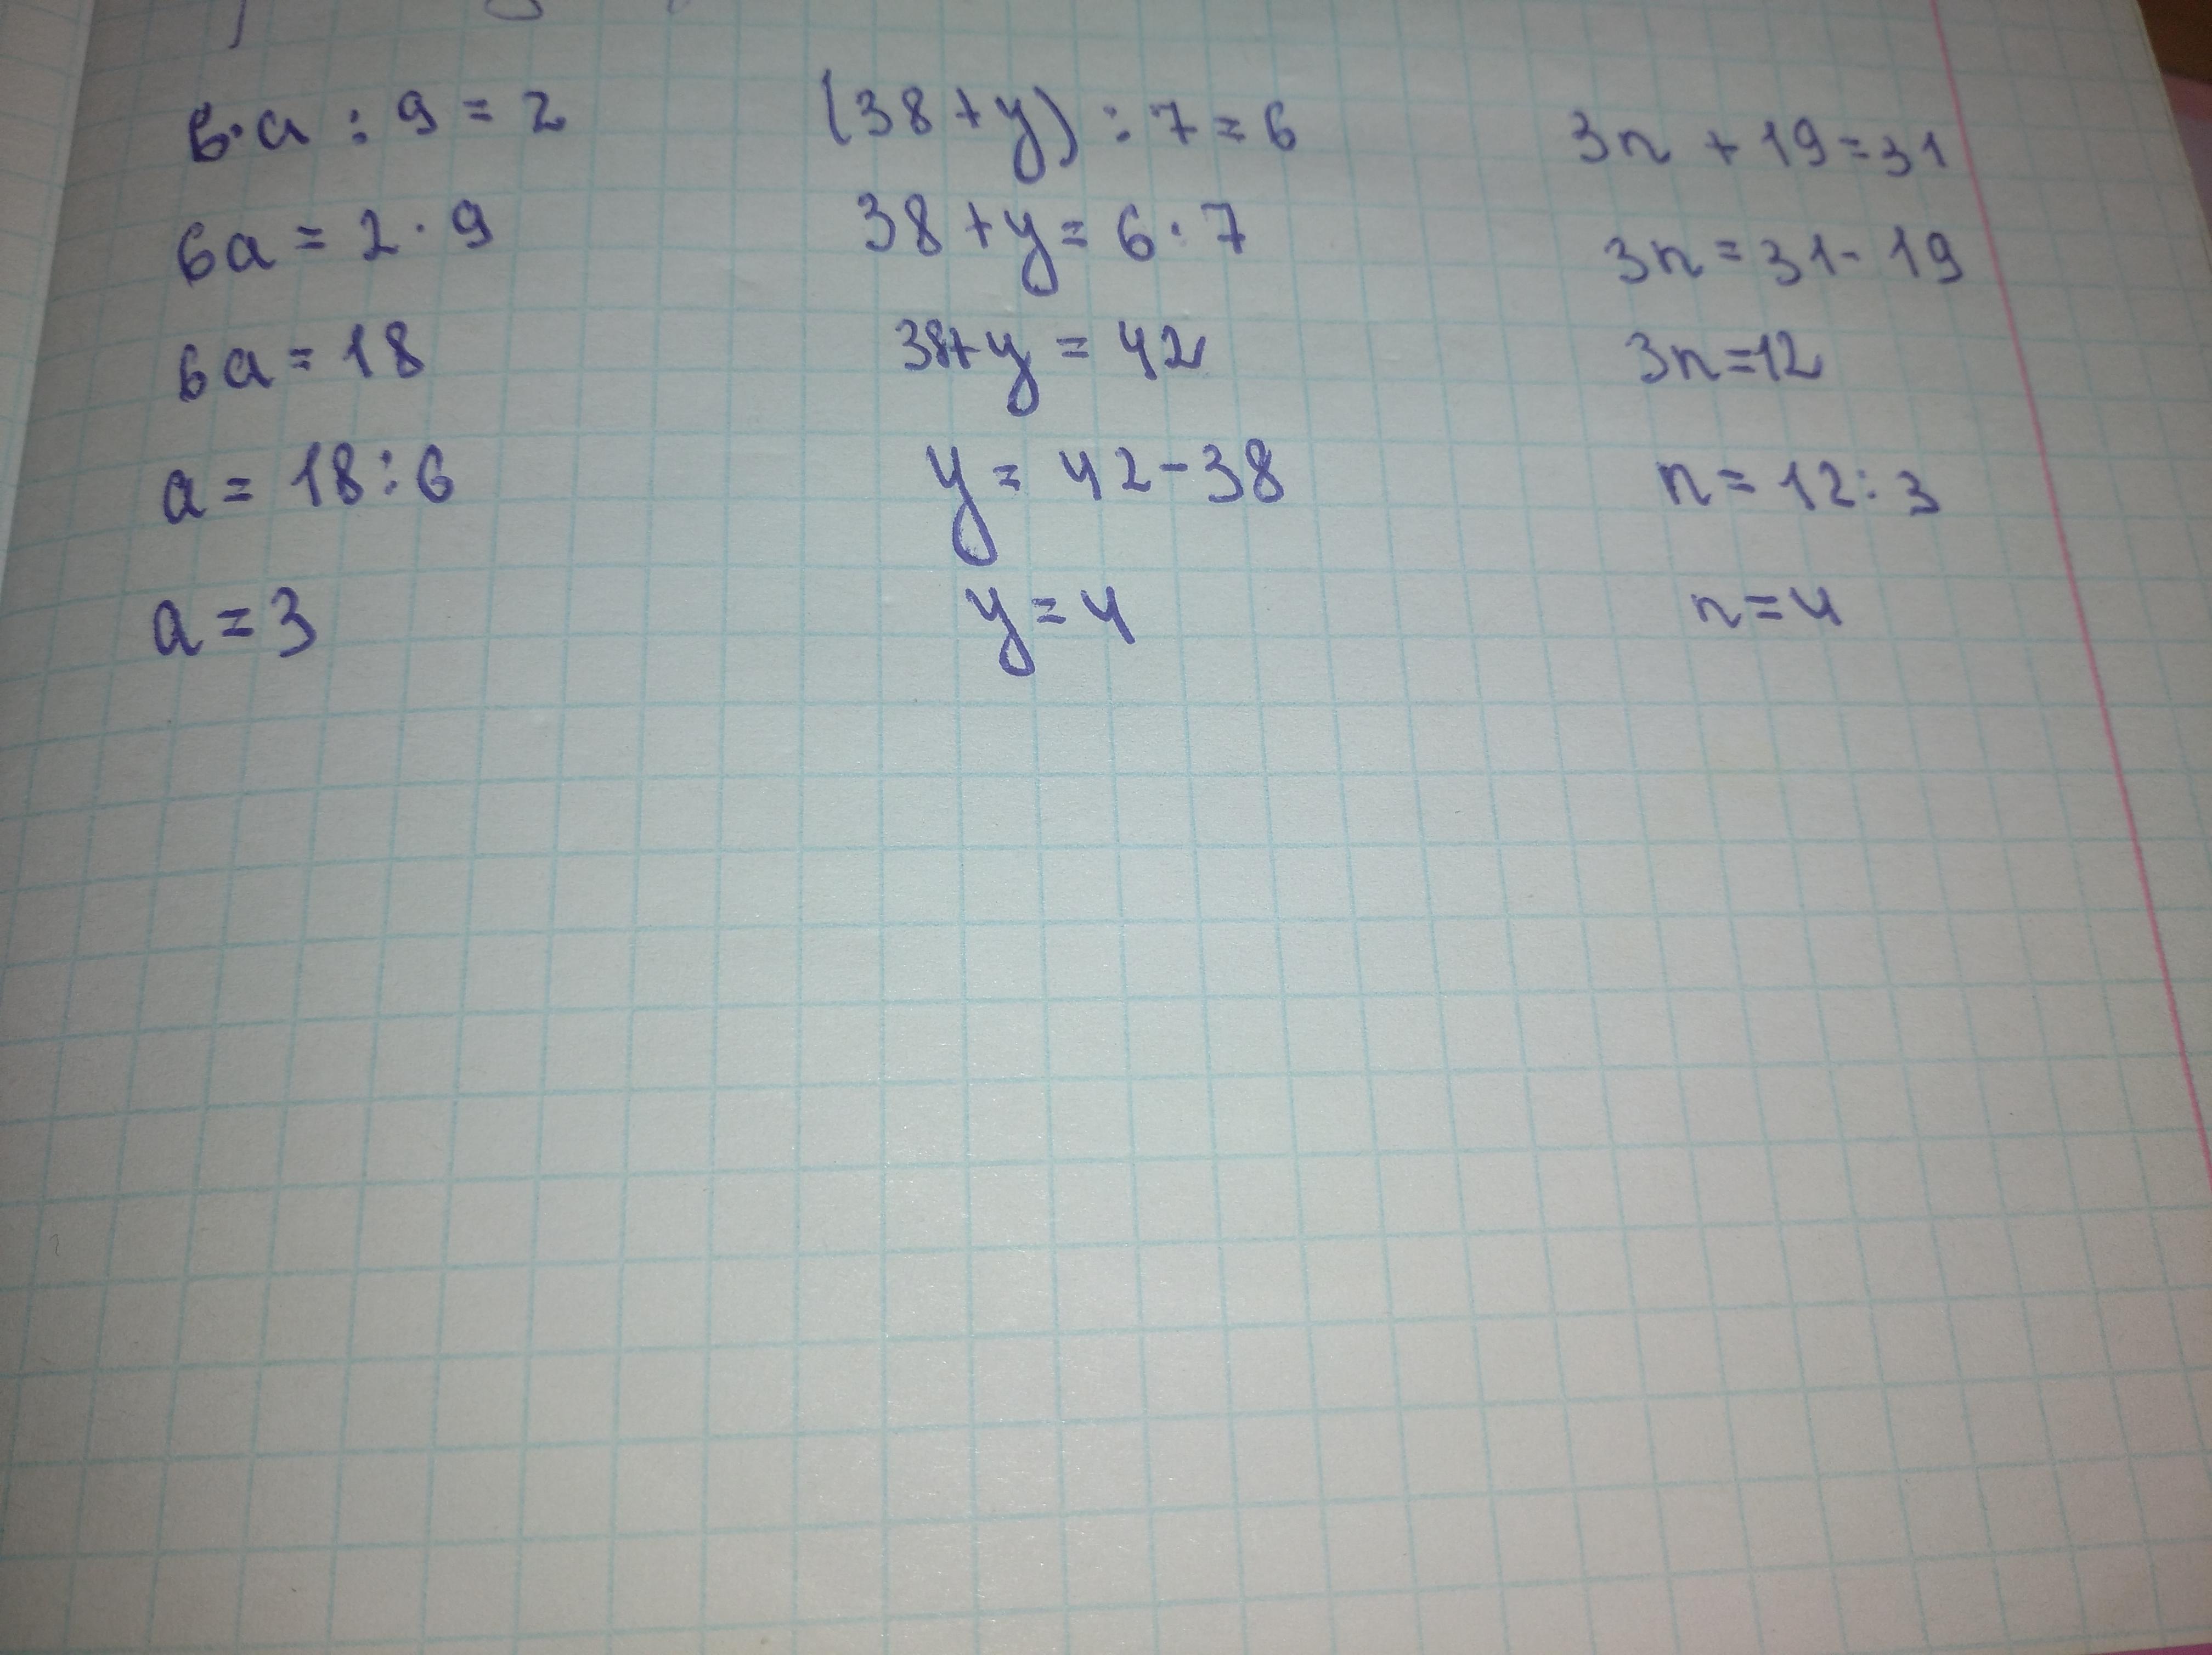 6·a : 9 = 2
6a = 2 · 9
6a = 18
a = 18 : 6
a = 3
(38 + y) : 7 = 6
38 + y = 6 · 7
38 + y = 42
y = 42 - 38
y = 4
3n + 19 = 31
3n = 31 - 19
3n = 12
n = 12 : 3
n = 4